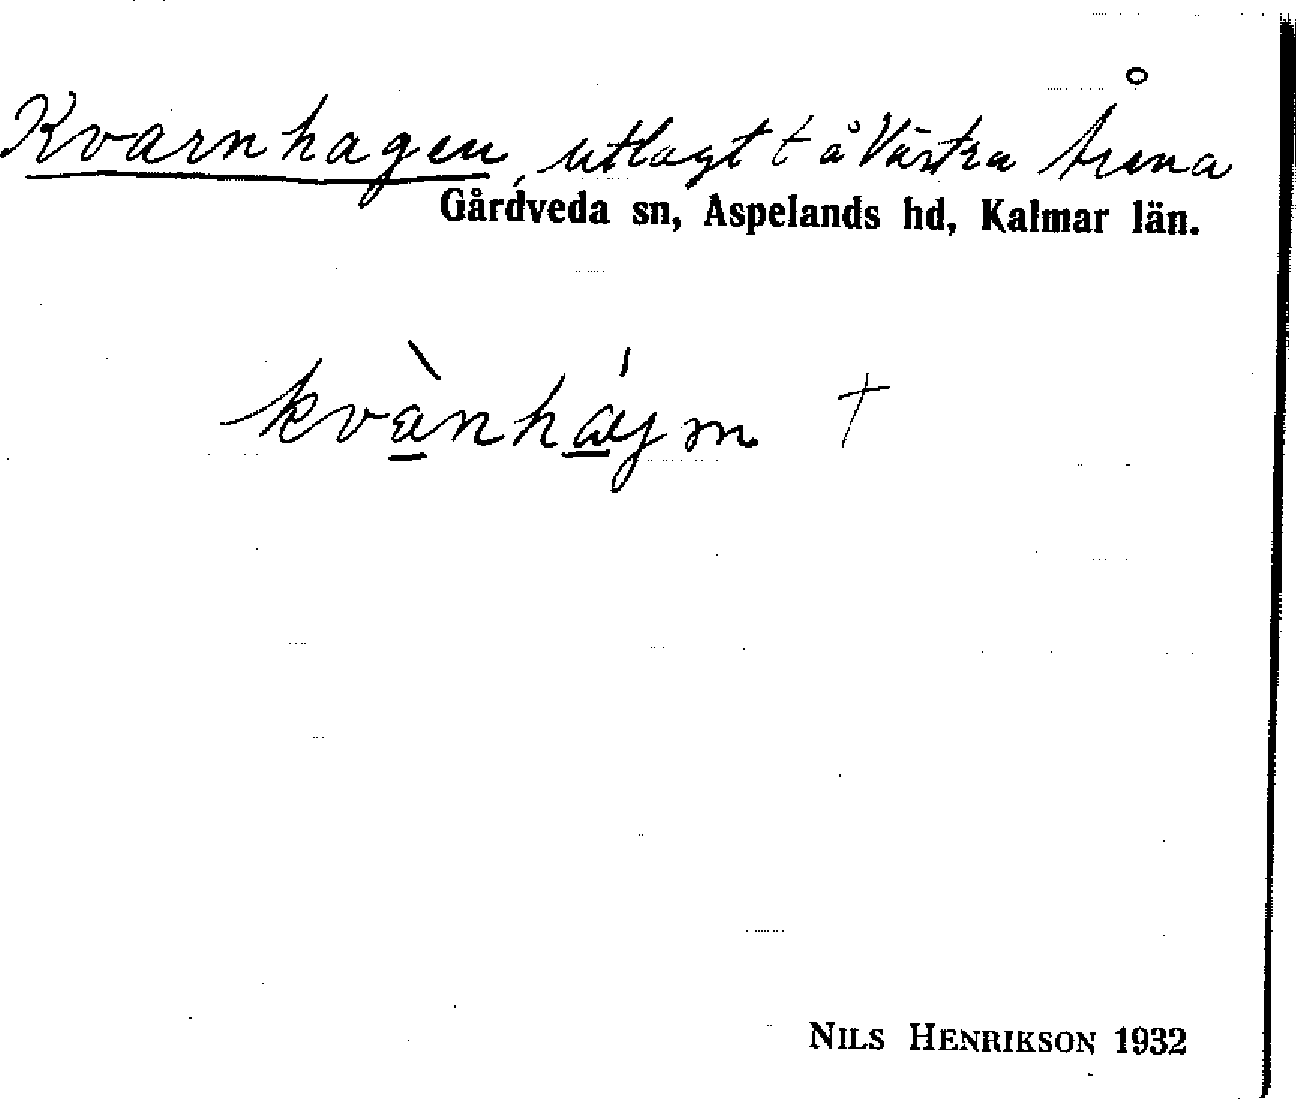 Kvarnhagen, utlagt t å Västra Årena
Gårdveda sn, Aspelands hd, Kalmar län.
kvànháɣm †
NILS HENRIKSON 1932